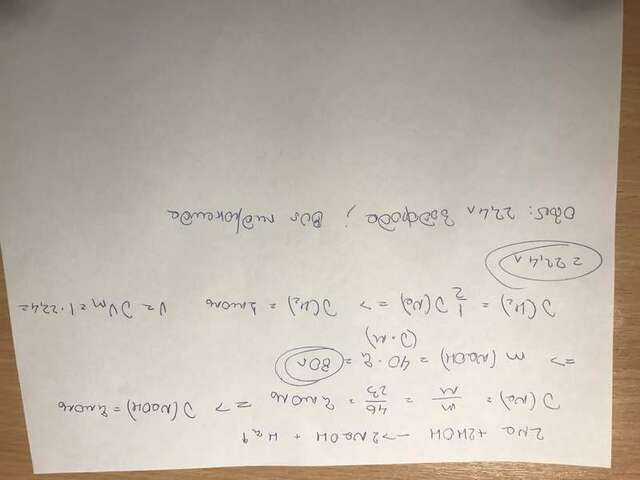 2Na + 2HOH —> 2NaOH + H₂↑
ν(Na) = m/M = 46/23 = 2 моль => ν(NaOH) = 2 моль
=> m(NaOH) = 40 · 2 = 80 г
(ν · M)
ν(H₂) = 1/2 ν(Na) => ν(H₂) = 1 моль V = νVm = 1 · 22,4 =
= 22,4 л
Ответ: 22,4 л водорода ; 80 г гидроксида